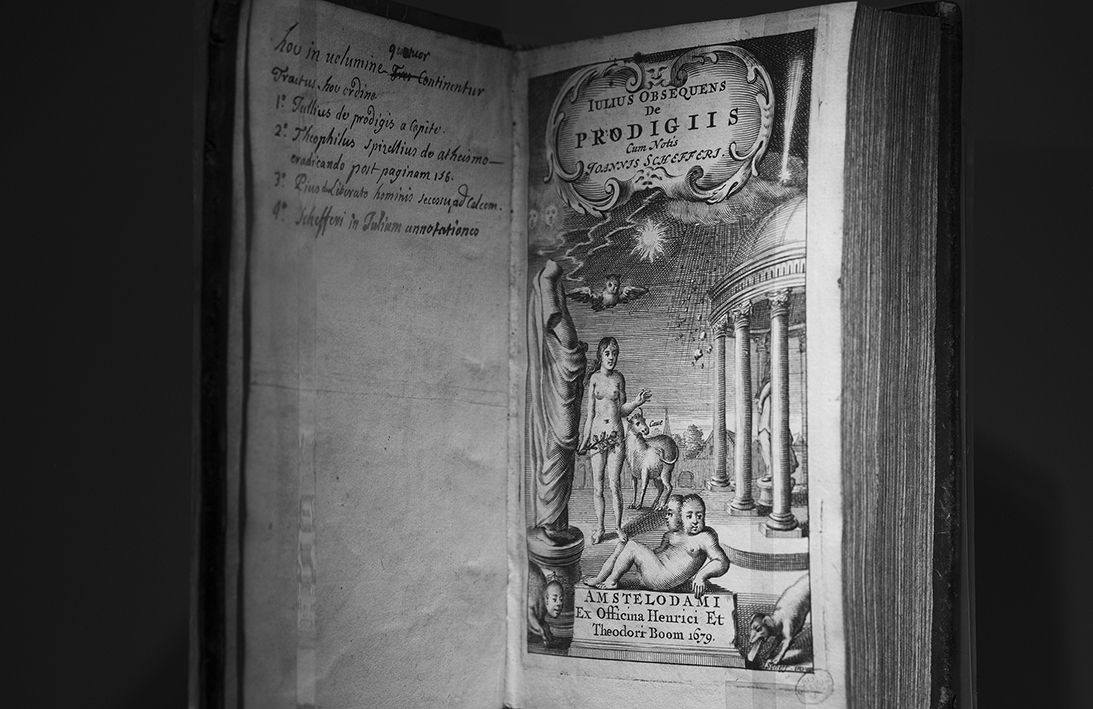 quatuor
hoc in uolumine Tres Continentur
Tractus hoc ordine
1º Jullius de prodigis a Capite.
2º Theophilus Spizellius de atheismo
eradicando post paginam 156.
3º Pius de Liberato hominis secessu ad Calcem.
4º Schefferi in Julium annotationes
IULIUS OBSEQUENS
De
PRODIGIIS
Cum Notis
IOANNIS SCHEFFERI.
Caue
AMSTELODAMI
Ex Officina Henrici Et
Theodori Boom 1679.